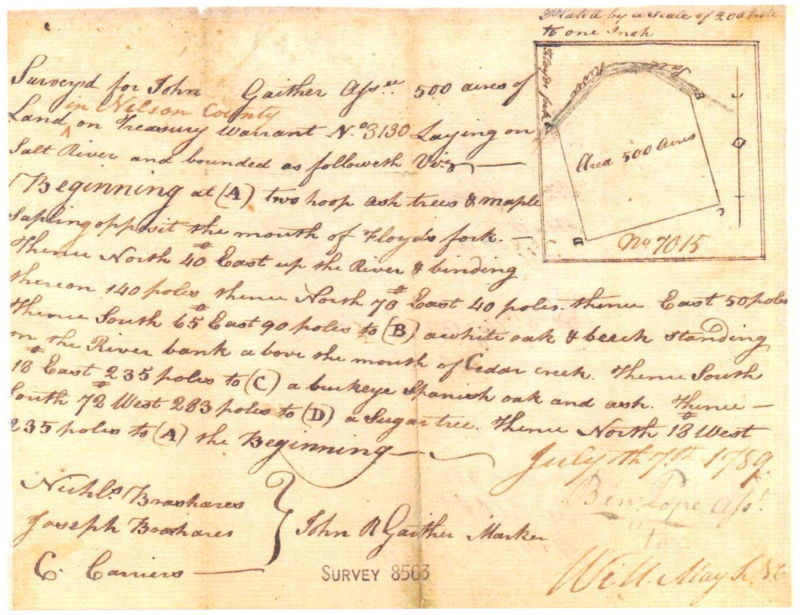 Plated by a scale of 200 poles
to one Inch
Survey'd for John Gaither Assee 500 acres of
in Nelson County
Land ^ on Treasury Warrant No 3130 Laying on
Salt River and bounded as followeth Viz
Beginning at (A) two hoop ash trees & maple
Sapling oppsit the mouth of Floyds fork.
Thence North 40 East up the River & binding
thereon 140 poles thence North 70 East 40 poles. thence East 50 poles
Thence South 65 East 90 poles to (B) a white oak & beech standing
on the River bank above the mouth of Cedar creek. Thence South
18 East 235 poles to (C) a buckeye Spanish oak and ash. Thence
South 72 West 283 poles to (D) a Sugar tree. Thence North 18 West
235 poles to (A) the Beginning
July th 7th 1789
Floyds fork
Salt River
A
B
Area 500 Acres
D
No 7015
Nichls Brashares
Joseph Brashares
C. Carriers
John R Gaither Marker
Ben Pope Asst
to
Will. May S. N C
SURVEY 8563